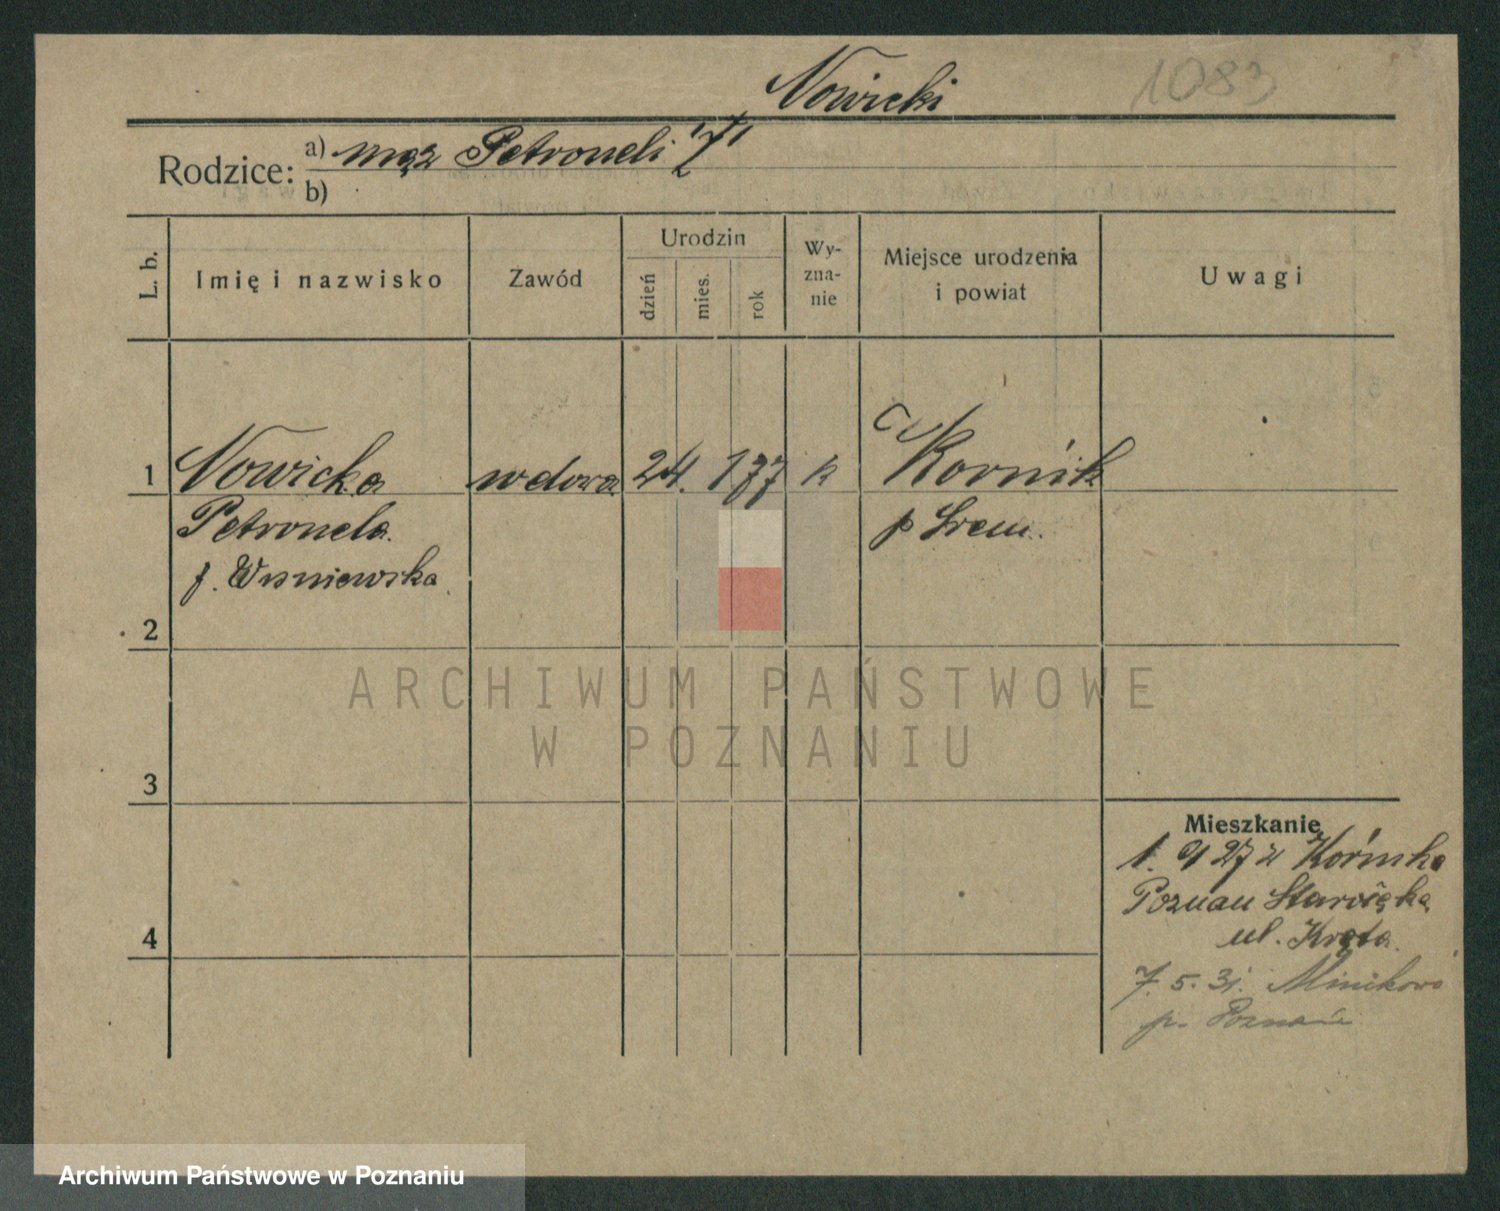 Nowicki 1083
Rodzice: a) mąż Petroneli
b)
L. b. Imię i nazwisko Zawód Urodzin dzień mies. rok Wy-zna-nie Miejsce urodzenia i powiat Uwagi
1 Nowicka wdowa 24. 1 77 k Kornik
Petronela p Srem.
f. Wisniewska
2
ARCHIWUM PAŃSTWOWE
W POZNANIU
3
4
Mieszkanie
1. 9 27 z Kórnika
Poznan Starołęka
ul. Kręta.
7. 5. 31. Minikowo
p. Poznań
Archiwum Państwowe w Poznaniu